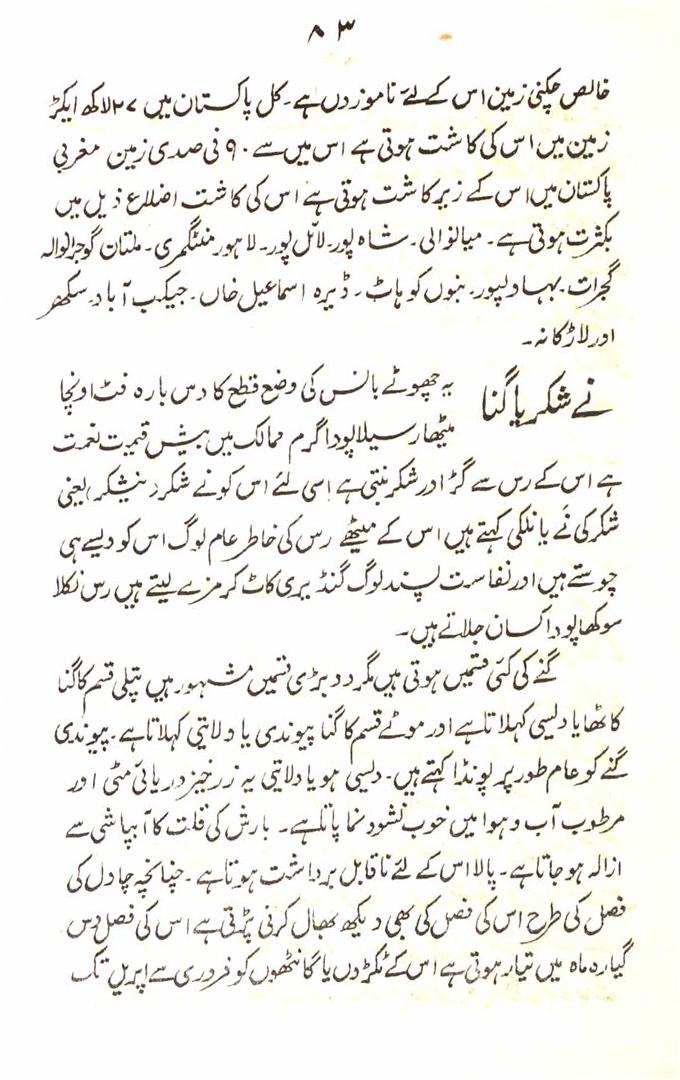 ۸۳
خالص چکنی زمین اس کے لئے ناموزوں ہے۔ کل پاکستان میں ۲۷ لاکھ ایکڑ
زمین میں اس کی کاشت ہوتی ہے اس میں سے ۹۰ فی صدی زمین مغربی
پاکستان میں اس کے زیر کاشت ہوتی ہے اس کی کاشت اضلاع ذیل میں
بکثرت ہوتی ہے۔ میانوالی۔ شاہ پور۔ لائل پور۔ لاہور منٹگمری۔ ملتان گوجرانوالہ
گجرات۔ بہاولپور۔ بنوں کوہاٹ۔ ڈیرہ اسماعیل خاں۔ جیکب آباد۔ سکھر
اور لاڑکانہ۔
نے شکر یا گنا یہ چھوٹے بانس کی وضع قطع کا دس بارہ فٹ اونچا
میٹھا رسیلا پودا گرم ممالک میں بیش قیمت نعمت
ہے اس کے رس سے گڑ اور شکر بنتی ہے اسی لئے اس کو نے شکر (نیشکر) یعنی
شکر کی نَے یا نلکی کہتے ہیں اس کے میٹھے رس کی خاطر عام لوگ اس کو ویسے ہی
چوستے ہیں اور نفاست پسند لوگ گنڈیری کاٹ کر مزے لیتے ہیں رس نکلا
سوکھا پودا کسان جلاتے ہیں۔
گنے کی کئی قسمیں ہوتی ہیں مگر دو بڑی قسمیں مشہور ہیں پتلی قسم کا گنا
کاٹھا یا دلیسی کہلاتا ہے اور موٹے قسم کا گنا پیوندی یا ولایتی کہلاتا ہے۔ پیوندی
گنے کو عام طور پر پونڈا کہتے ہیں۔ دلیسی ہو یا ولایتی یہ زرخیز دریائی مٹی اور
مرطوب آب و ہوا میں خوب نشوونما پاتا ہے۔ بارش کی قلت کا آبپاشی سے
ازالہ ہو جاتا ہے۔ پالا اس کے لئے ناقابل برداشت ہوتا ہے۔ چنانچہ چاول کی
فصل کی طرح اس کی فصل کی بھی دیکھ بھال کرنی پڑتی ہے اس کی فصل دس
گیارہ ماہ میں تیار ہوتی ہے اس کے ٹکڑوں یا گانٹھوں کو فروری سے اپریل تک